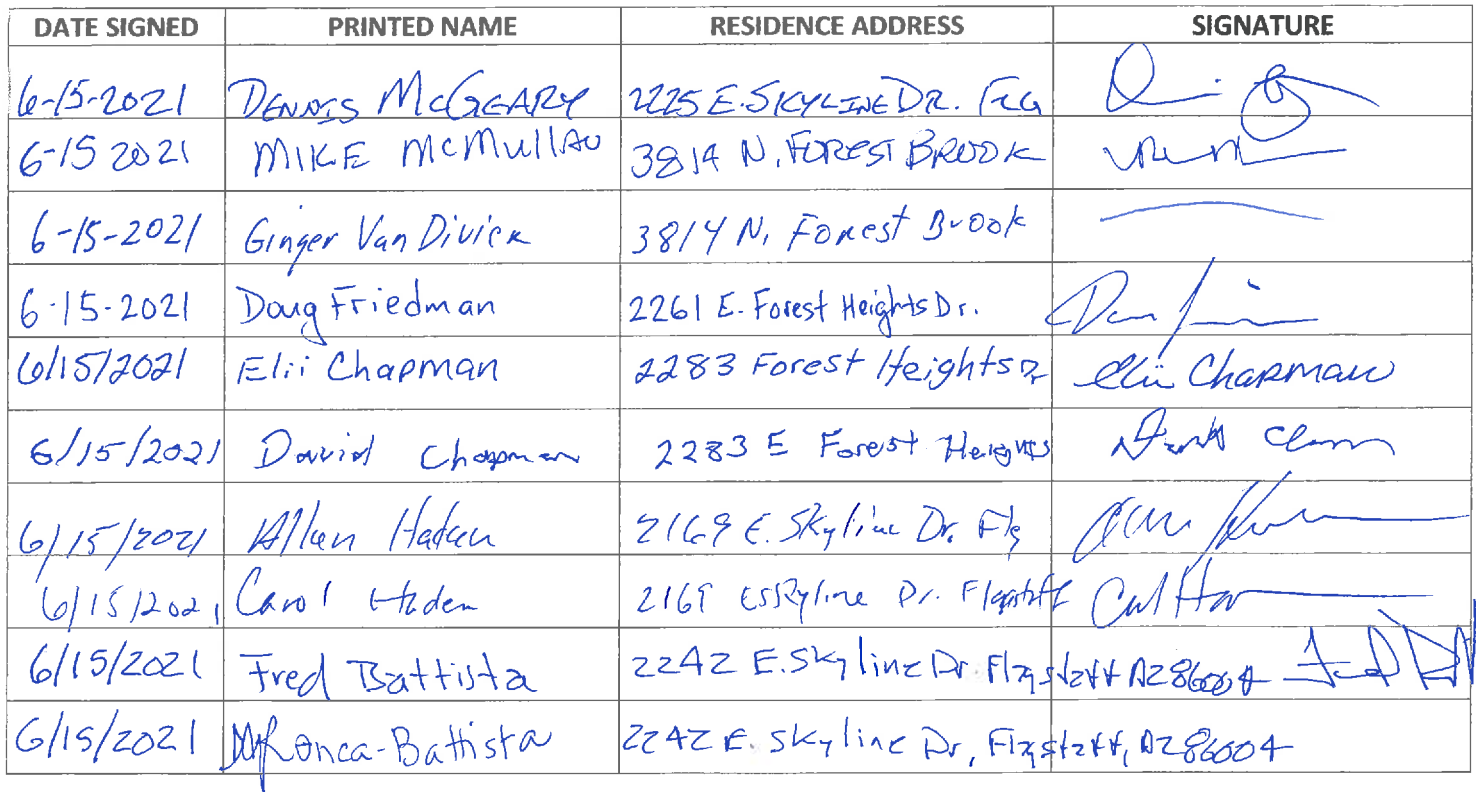 DATE SIGNED PRINTED NAME RESIDENCE ADDRESS SIGNATURE
6-15-2021 DENNIS McGEARY 2225 E. SKYLINE DR. FLG
6-15 2021 MIKE McMullAN 3814 N. FOREST BROOK
6-15-2021 Ginger Van Divier 3814 N. Forest Brook
6-15-2021 Doug Friedman 2261 E. Forest Heights Dr.
6/15/2021 Elii Chapman 2283 Forest Heights Dr Elii Chapman
6/15/2021 David Chapman 2283 E Forest Heights
6/15/2021 Allan Haden 2169 E. Skyline Dr. Flg
6/15/2021 Carol Haden 2169 E Skyline Dr. Flagstaff
6/15/2021 Fred Battista 2242 E. Skyline Dr. Flagstaff AZ 86004
6/15/2021 Ronca-Battista 2242 E. Skyline Dr, Flagstaff, AZ 86004